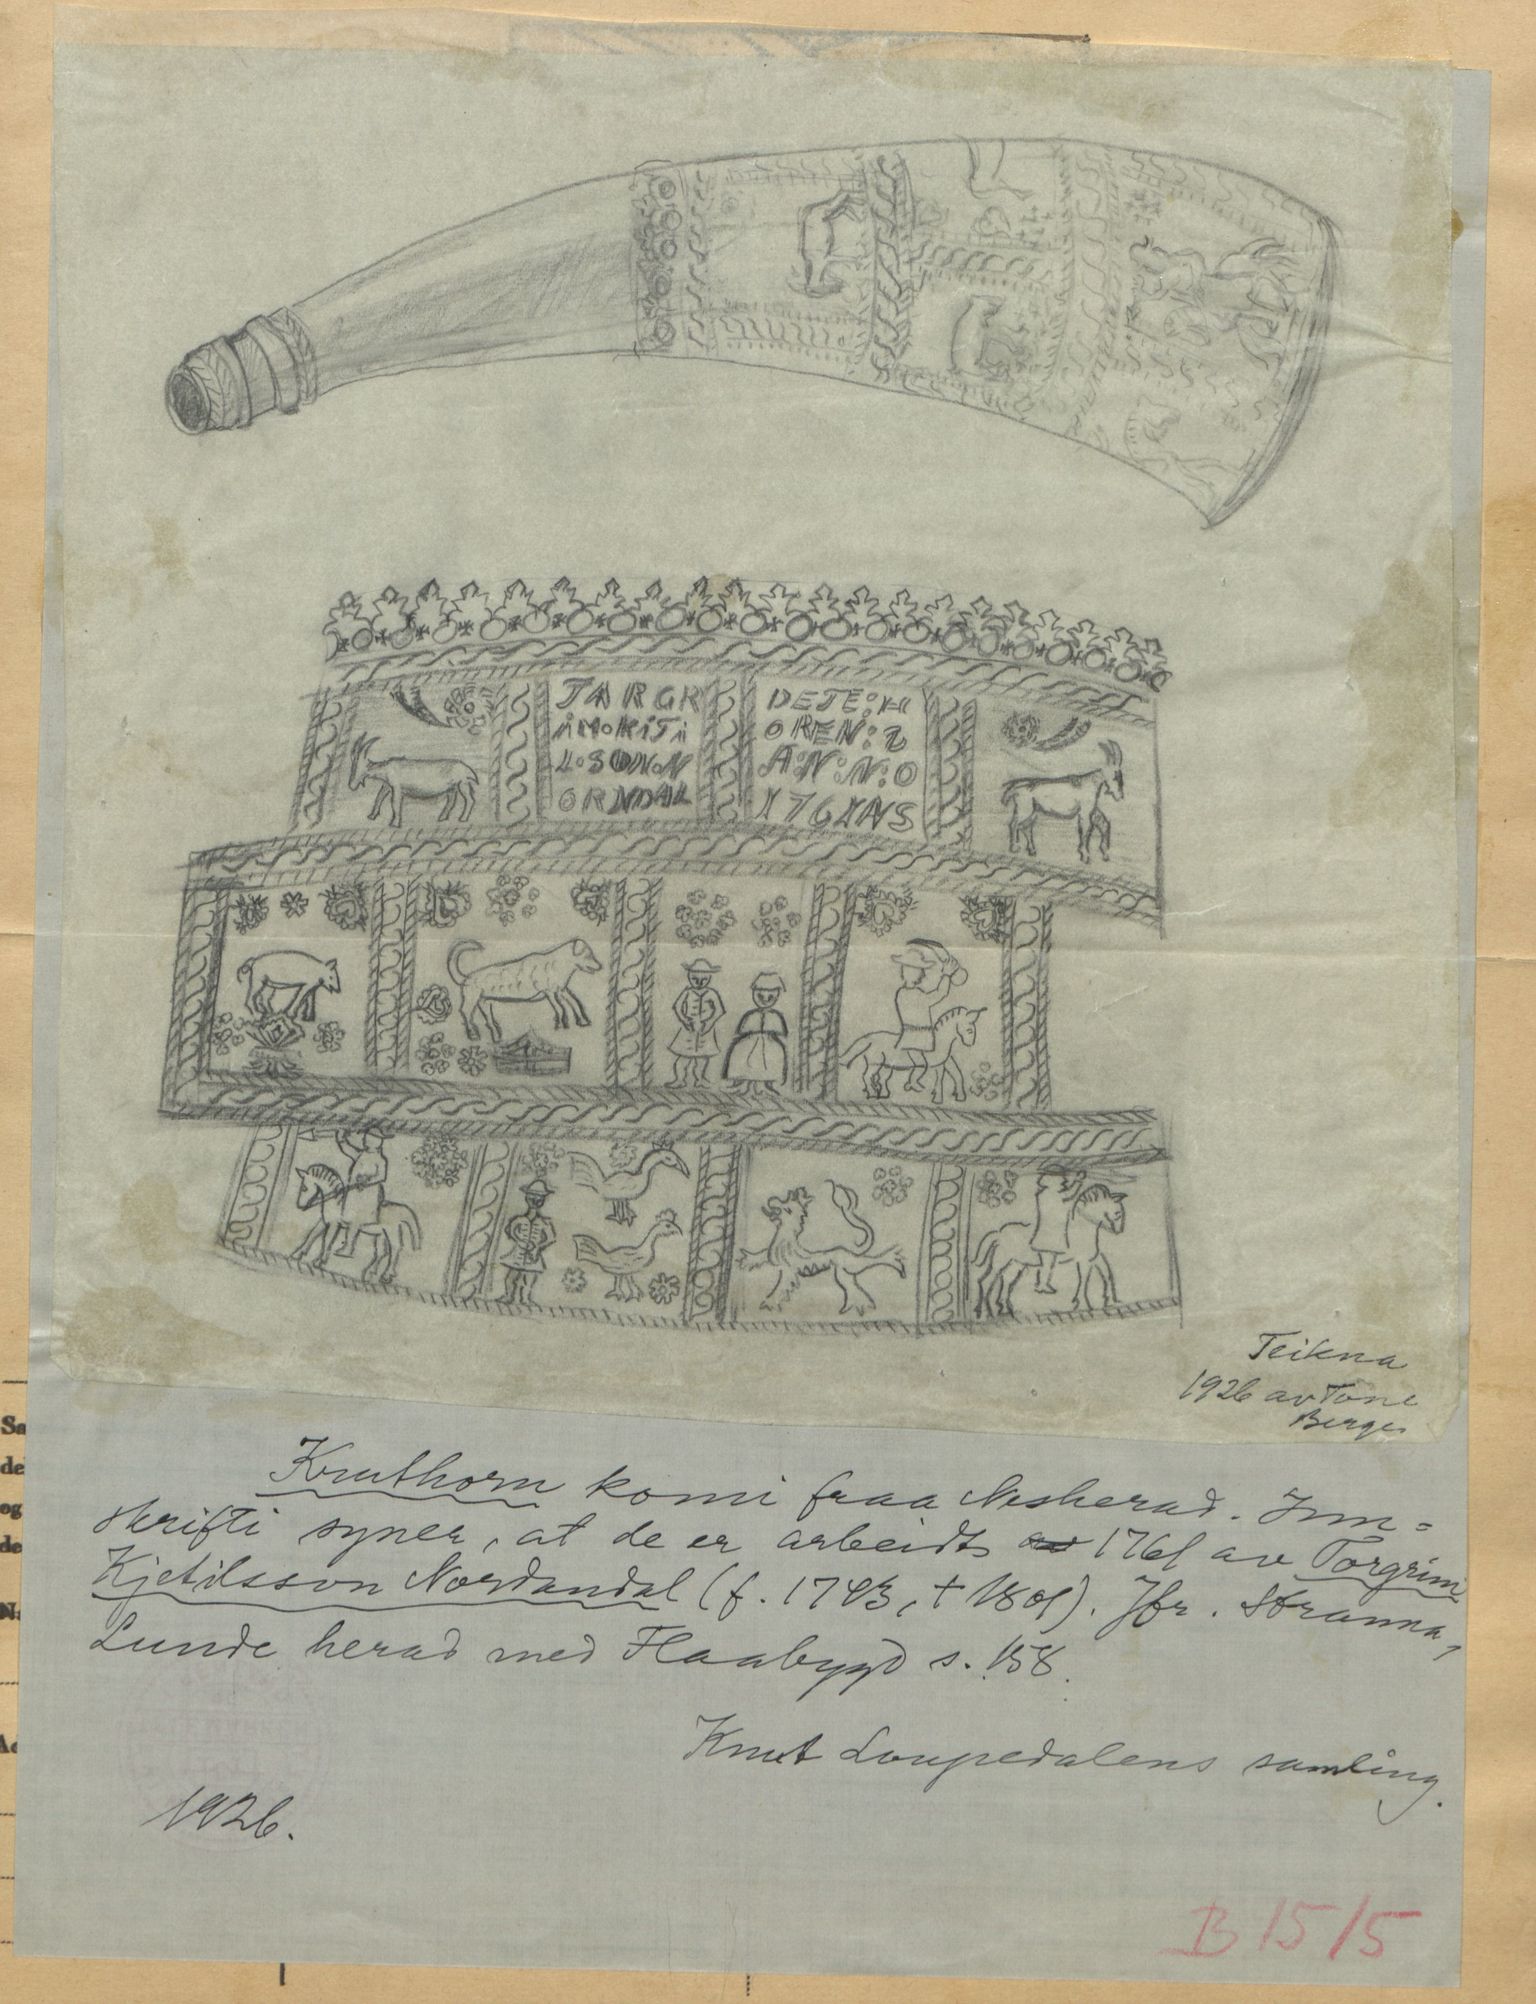 TARGR
iMoKiTi
L:SON:N
ORNDAL
DETE:H
OREN:2
A:N:N:O
1761NS
Teikna
1926 av Tone
Berge
Kruthorn komi fraa Nesherad. Inn=
skrifti syner, at de er arbeidt 1761 av Torgrim
Kjetilsson Nordandal (f. 1743, † 1801). Jfr. Stranna,
Lunde herad med Flaabygd s. 158.
Knut Loupedalens samling.
1926.
B 15/5
Sa
de
og
de